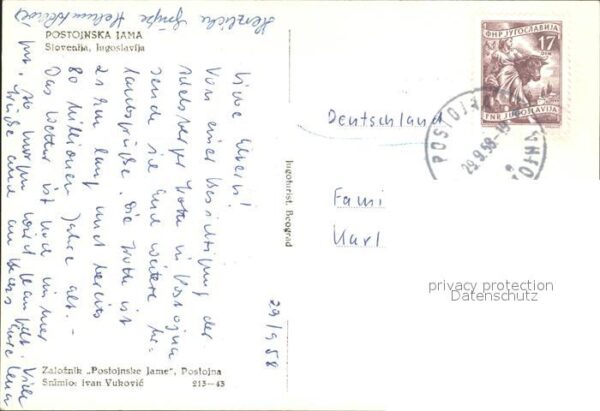 POSTOJNSKA JAMA
Slovenija, Jugoslavija
29/9 58
Liebe Eltern!
Von einer Besichtigung der
Adelsberger Grotte in Postojna
sende ich Euch weitere
Urlaubsgrüße. Die Grotte ist
25 km lang und bereits
80 Millionen Jahre alt. –
Das Wetter ist noch immer
gut, so morgen wird Viele
Grüße und an Eure Lena
Herzliche Grüße
Založnik „Postojnske Jame", Postojna
Snimio: Ivan Vuković 213—43
Jugoturist, Beograd
ФНР ЈУГОСЛАВИЈА
17
DIN
FNR JUGOSLAVIJA
POSTOJNA
29.9.58-19
Deutschland
Fami
Karl
privacy protection
Datenschutz